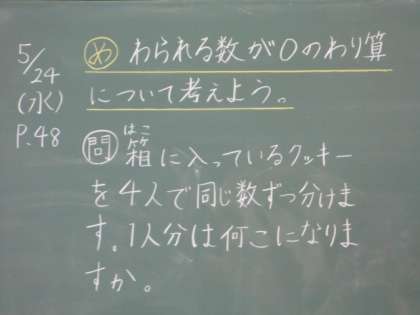 5/24
(水)
P.48
め わられる数が0のわり算
について考えよう。
はこ
問 箱に入っているクッキー
を4人で同じ数ずつ分けま
す。1人分は何こになりま
すか。